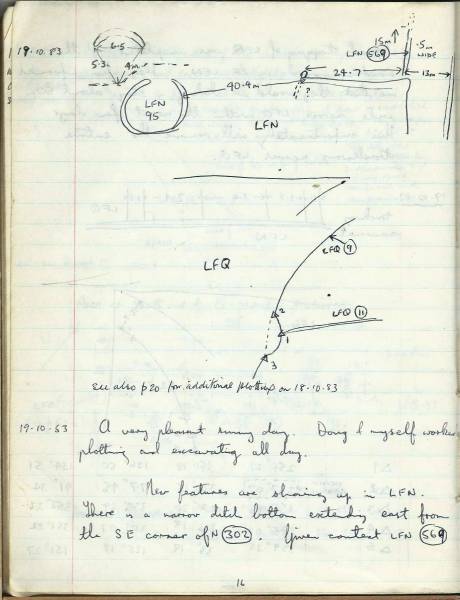 19.10.83
6.5
5.3 4m
LFN
95
40.4m
LFN
15m
LFN 569
.5m
WIDE
24.7
13m
?
LFQ
LFQ 9
LFQ 11
2
1
3
see also p20 for additional plotting on 18.10.83
19.10.83 A very pleasant sunny day. Doug & myself worked
plotting and excavating all day.
New features are showing up in LFN.
There is a narrow ditch bottom extending east from
the SE corner of N 302. Given context LFN 569
16